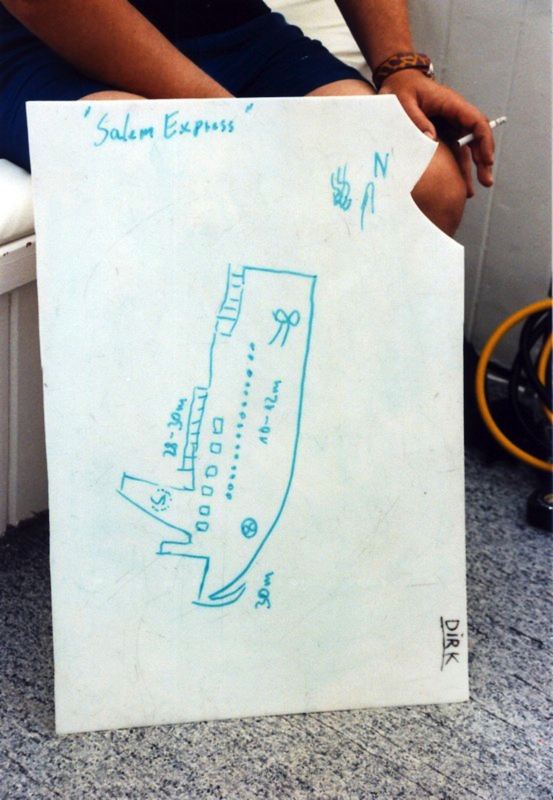 "Salem Express"
N
28-30m
10-12m
S
30m
DiRK